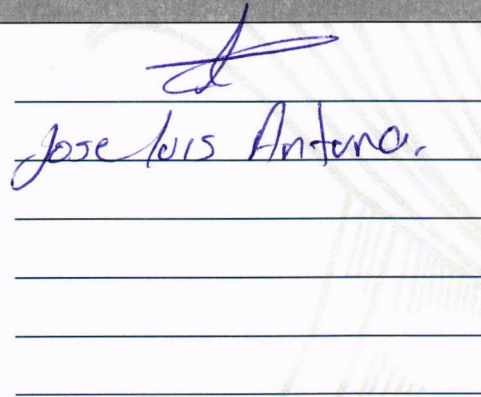 Jose luis Antuna.